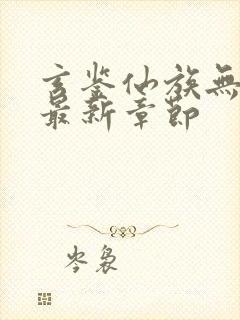 玄鉴仙族無
最新章節
岑裊